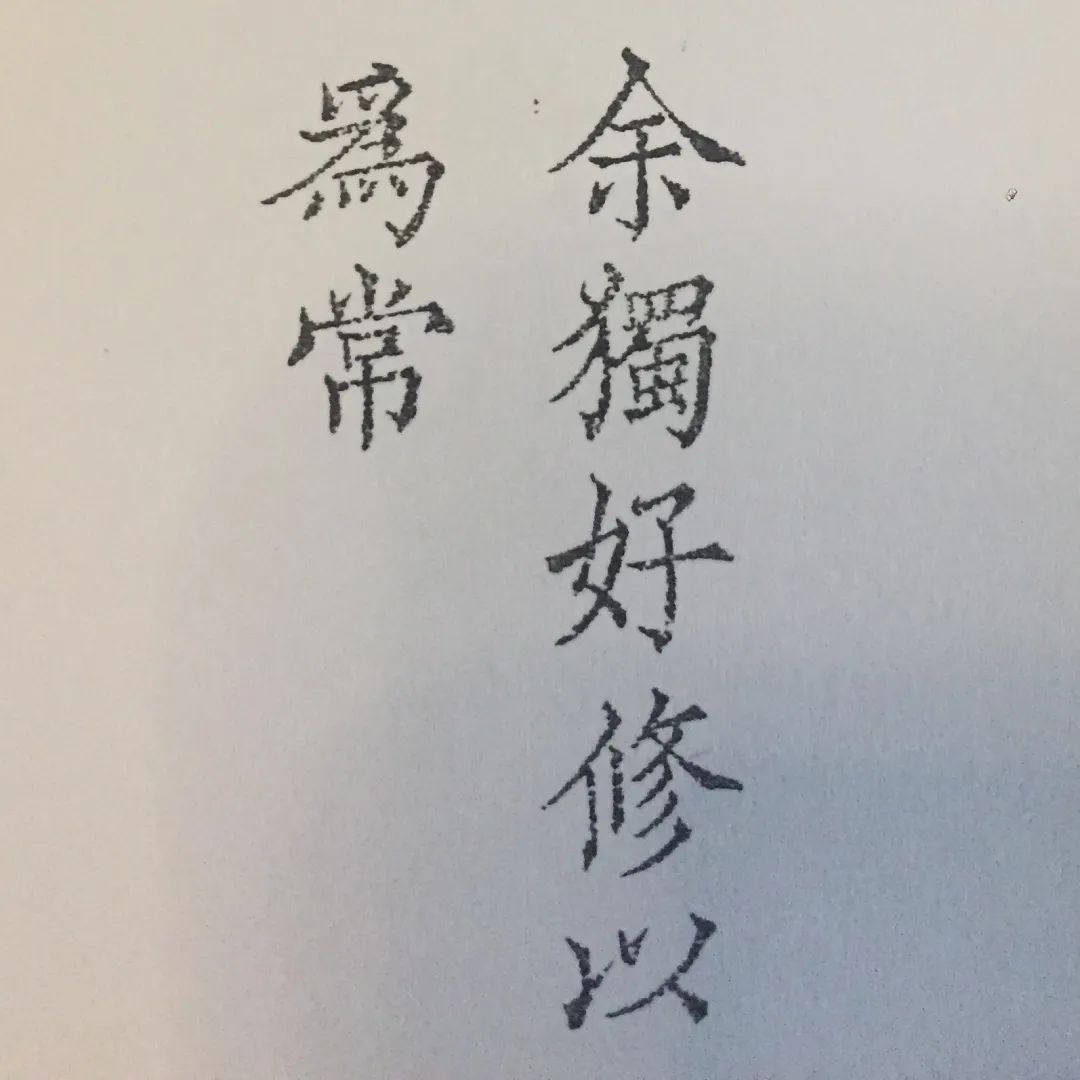 余獨好修以
為常